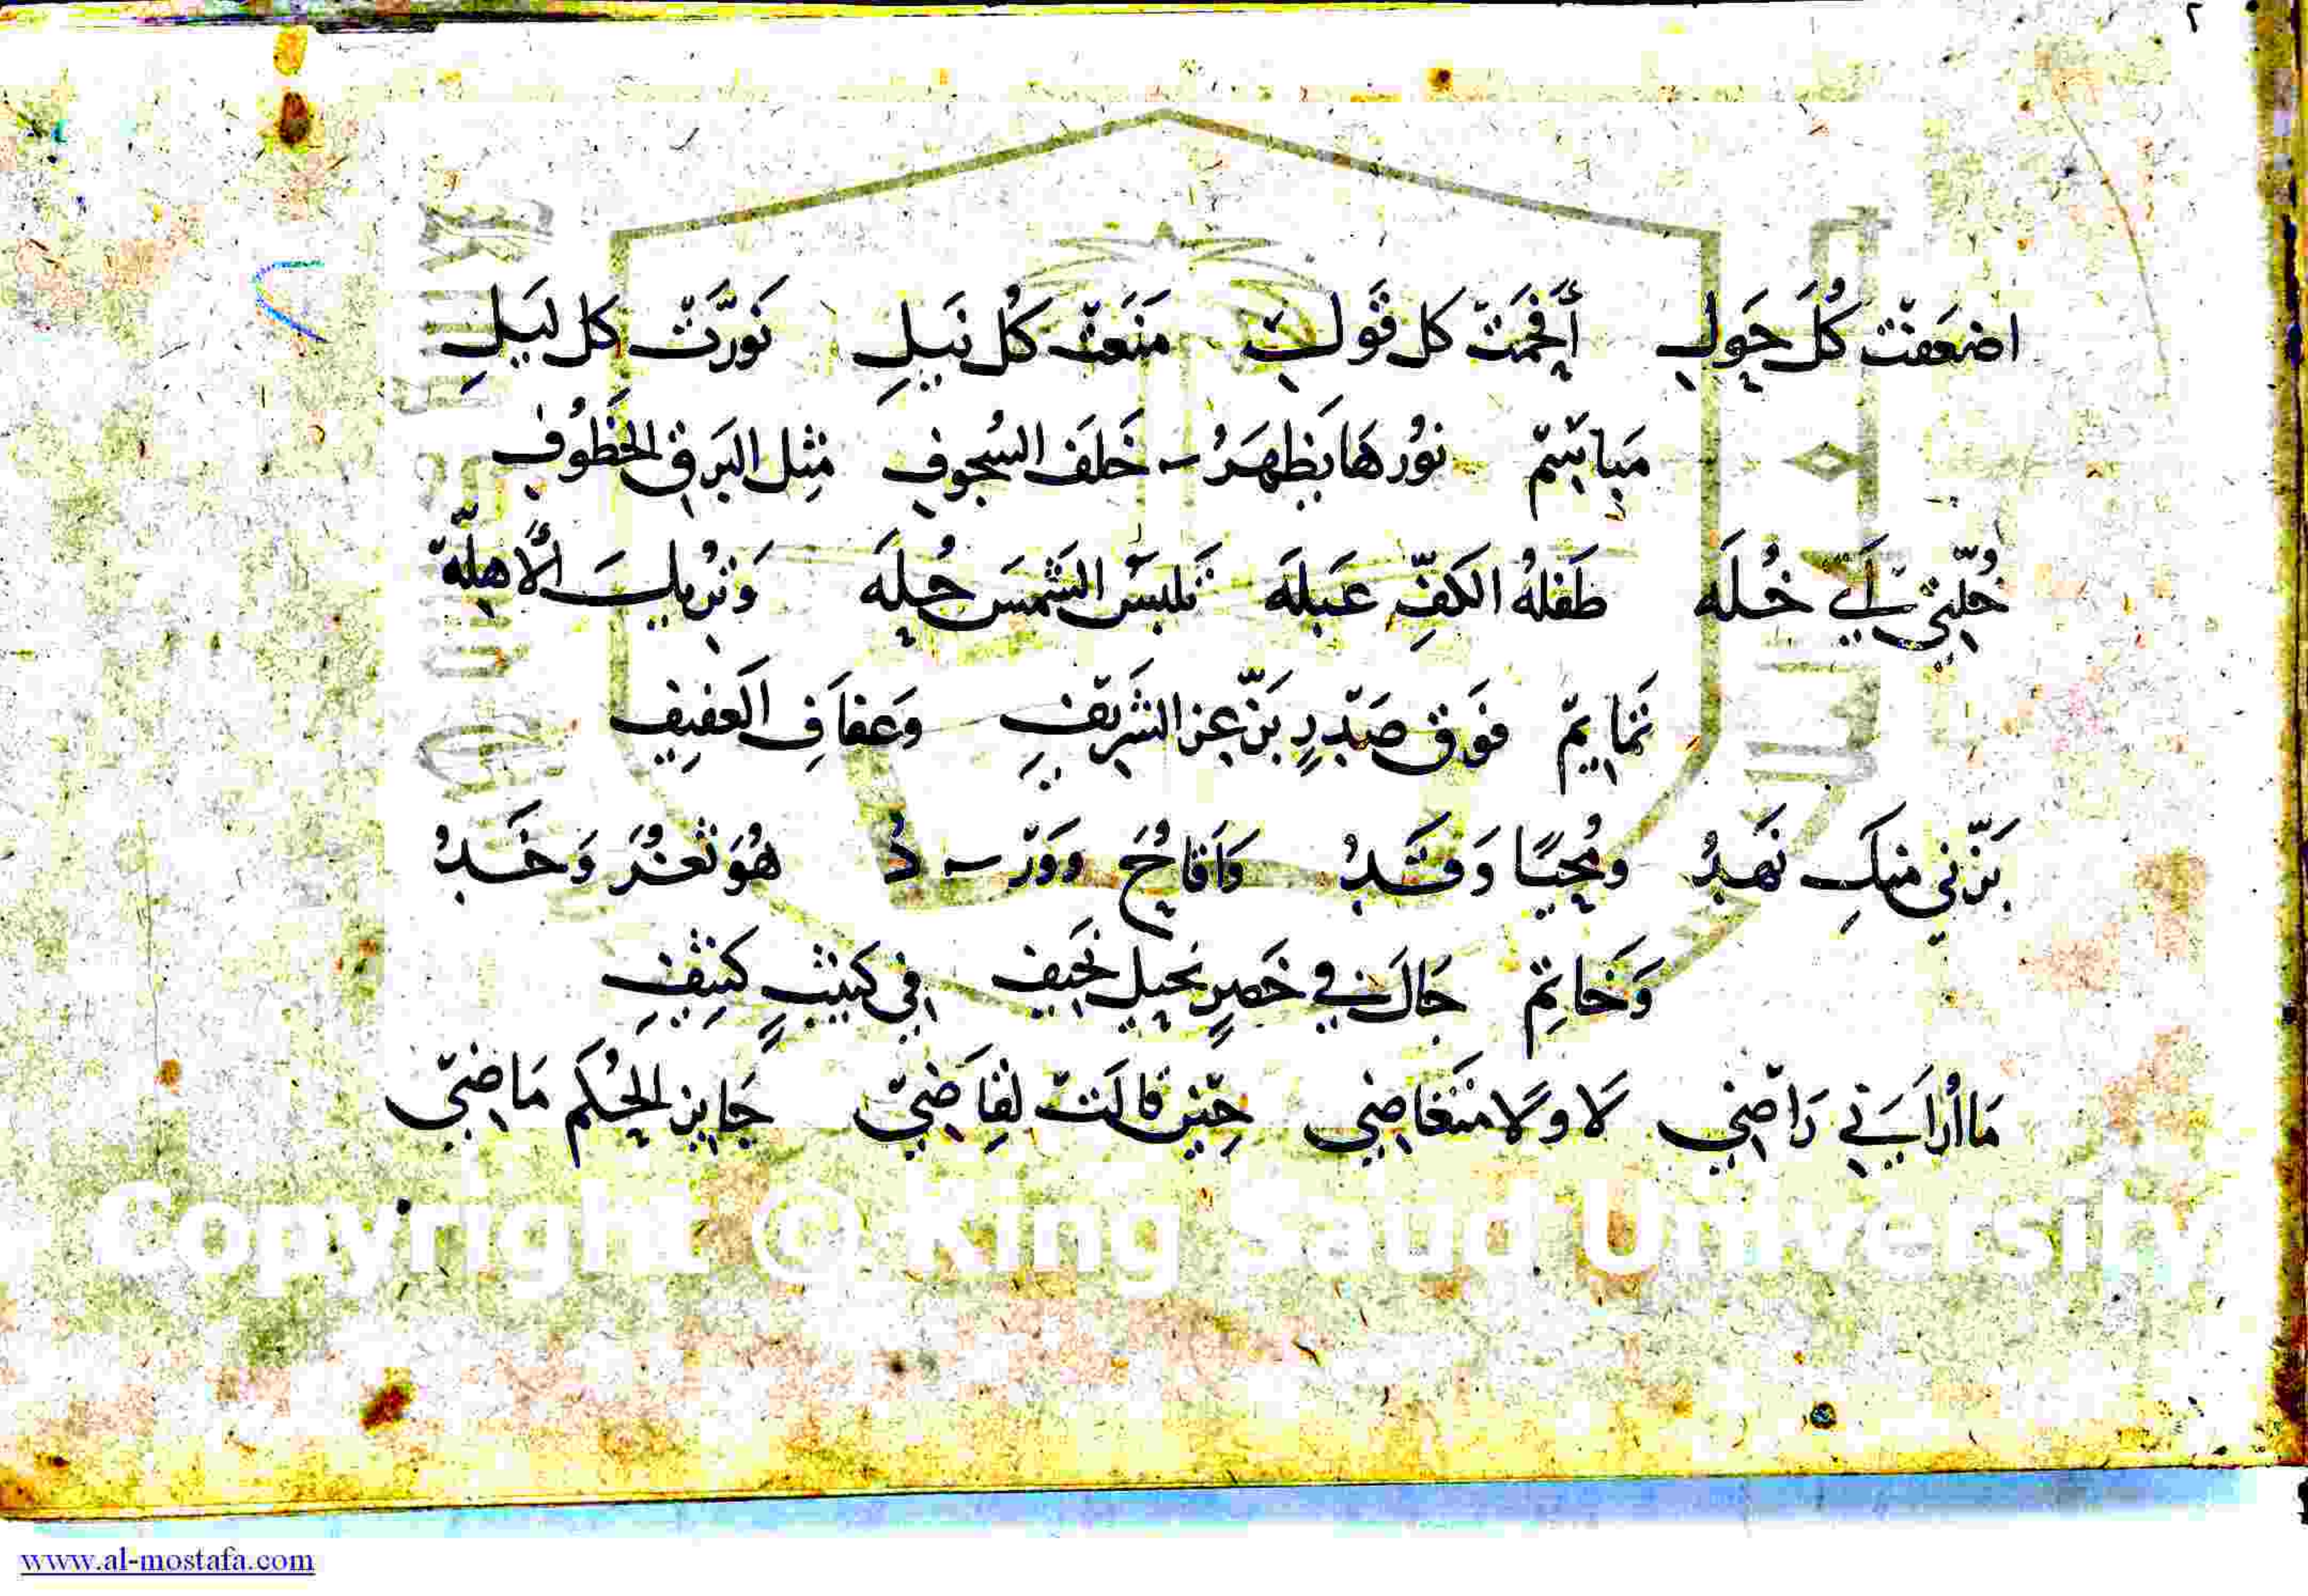 ٢
اضعَفت كُلَ حَولِ أَفحَمَت كل قَولِ مَنَعَت كُل نَيلِ نَورَّت كل لَيلِ
مَباسِم نوُرهَا يَظهَرُ خَلفَ السُجوفِ مِثل البَرقِ الخَطوُفِ
خُلّتي لَي خُلَه طَفلهُ الكَفِّ عَبلَه تَلبسُ الشَمسَ حُلِه
تمايم فَوق صَدرٍ بَزّ عِز الشَرِيفِ وَعفاَفِ العَفِيفِ
بَزّني منكِ نَهدُ ومُحيًا وَقَدُ وَاَقاحُ وَوَردُ هُوَ ثغرُ وَخَدُ
وَخاتِم جَالَ في خَصرٍ نحيلٍ نَحيفِ في كثيبٍ كثِيفِ
مَا اُراَني رَاضي لاَ ولاَ متغاضِي حِين قالَت لقِاَضِي جَاير الحُكم مَاضي
Copyright © King Saud University
www.al-mostafa.com